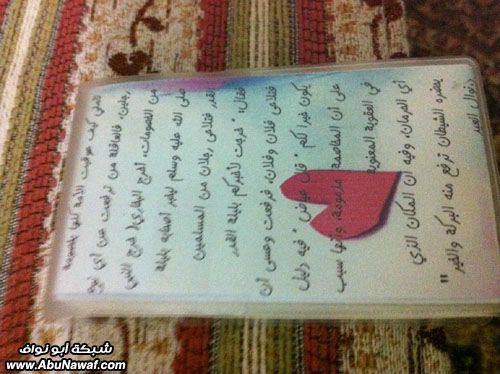 تأملي كيف عوقبت الأمة كلها بخصومة
رجلين، فالعاقلة من ترفعت عن أي نوع
من الخصومات، أخرج البخاري( خرج النبي
صلى الله عليه وسلم ليخبر أصحابه بليلة
القدر فتلاحى رجلان من المسلمين
فقال،" خرجت لأخبركم بليلة القدر
فتلاحى فلان وفلان، فرفعت وعسى أن
يكون خيرا لكم " قال عياض " فيه دليل
على أن المخاصمة مذمومة، وأنها سبب
في العقوبة المعنوية
أي الحرمان، وفيه أن المكان الذي
يحضره الشيطان ترفع منه البركة والخير"
د.نوال العيد
شبكة أبو نواف
www.AbuNawaf.com